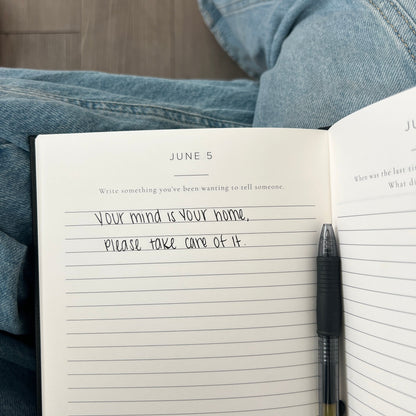 JUNE 5
Write something you've been wanting to tell someone.
Your mind is your home,
Please take care of it.
JU
When was the last
What di